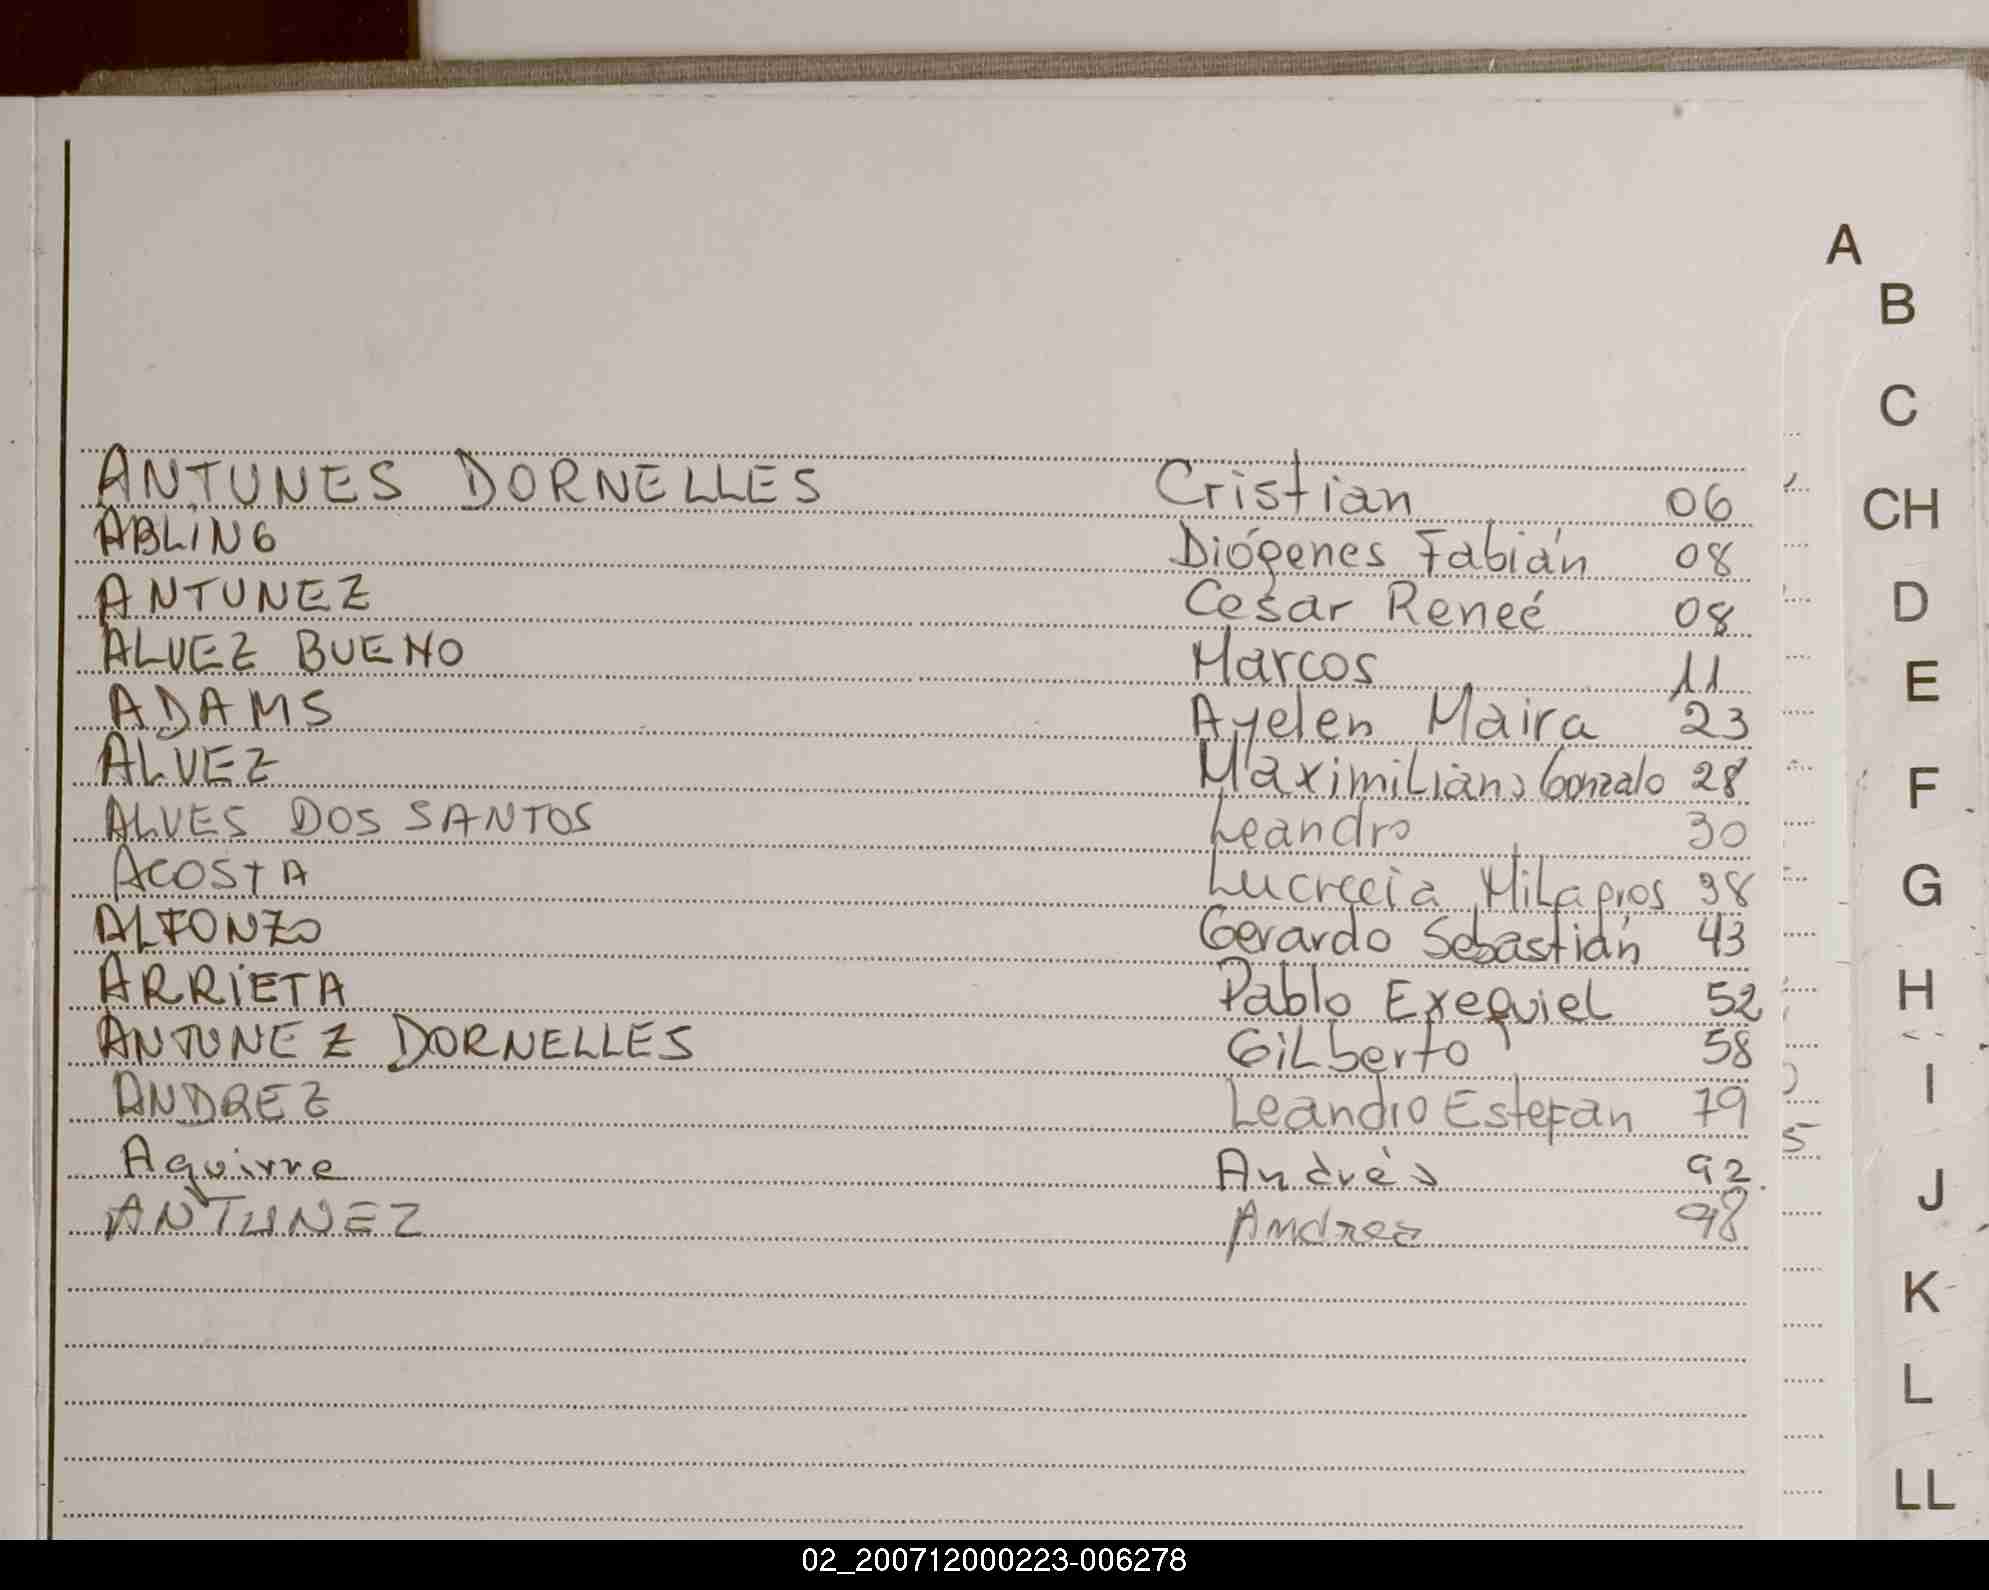 ANTUNES DORNELLES Cristian 06
ABLING Diógenes Fabián 08
ANTUNEZ Cesar Reneé 08
ALVEZ BUENO Marcos 11
ADAMS Ayelen Maira 23
ALVEZ Maximiliano Gonzalo 28
ALVES DOS SANTOS Leandro 30
ACOSTA Lucrecia Milagros 38
ALFONZO Gerardo Sebastián 43
ARRIETA Pablo Exequiel 52
ANTUNEZ DORNELLES Gilberto 58
ANDREZ Leandro Estefan 79
Aguirre Andrés 92.
ANTUNEZ Andrea 98
A
B
C
CH
D
E
F
G
H
I
J
K
L
LL
5
02_200712000223-006278